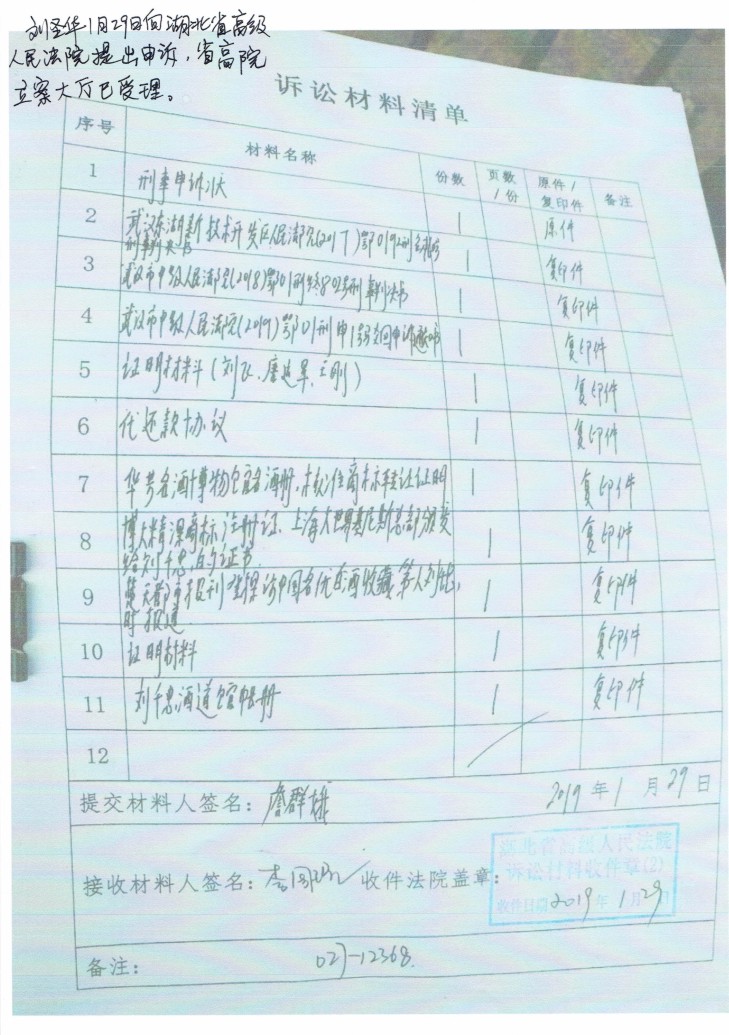 刘圣华1月29日向湖北省高级
人民法院提出申诉，省高院
立案大厅已受理。
诉讼材料清单
序号 材料名称 份数 页数/份 原件/复印件 备注
1 刑事申诉状 1 原件
2 武汉东湖新技术开发区人民法院(2017)鄂0192刑初 1 复印件
刑事判决书
3 武汉市中级人民法院(2018)鄂01刑终802号刑事判决书 1 复印件
4 武汉市中级人民法院(2019)鄂01刑申1号驳回申诉通知书 1 复印件
5 证明材料(刘飞、唐建军、王刚) 1 复印件
6 代还款协议 1 复印件
7 华粤名酒博物馆名酒册、核准商标转让证明 1 复印件
8 博大精深商标注册证、上海大世界基尼斯总部颁发 1 复印件
给刘千忠的证书
9 楚天都市报刊登探访中国名优白酒收藏第一人刘千忠 1 复印件
时报道
10 证明材料 1 复印件
11 刘千忠酒道馆帐册 1 复印件
12
提交材料人签名：詹群雄 2019年1月29日
接收材料人签名： 收件法院盖章：
湖北省高级人民法院
诉讼材料收件章(2)
收件日期2019年1月29日
备注： 027-12368.